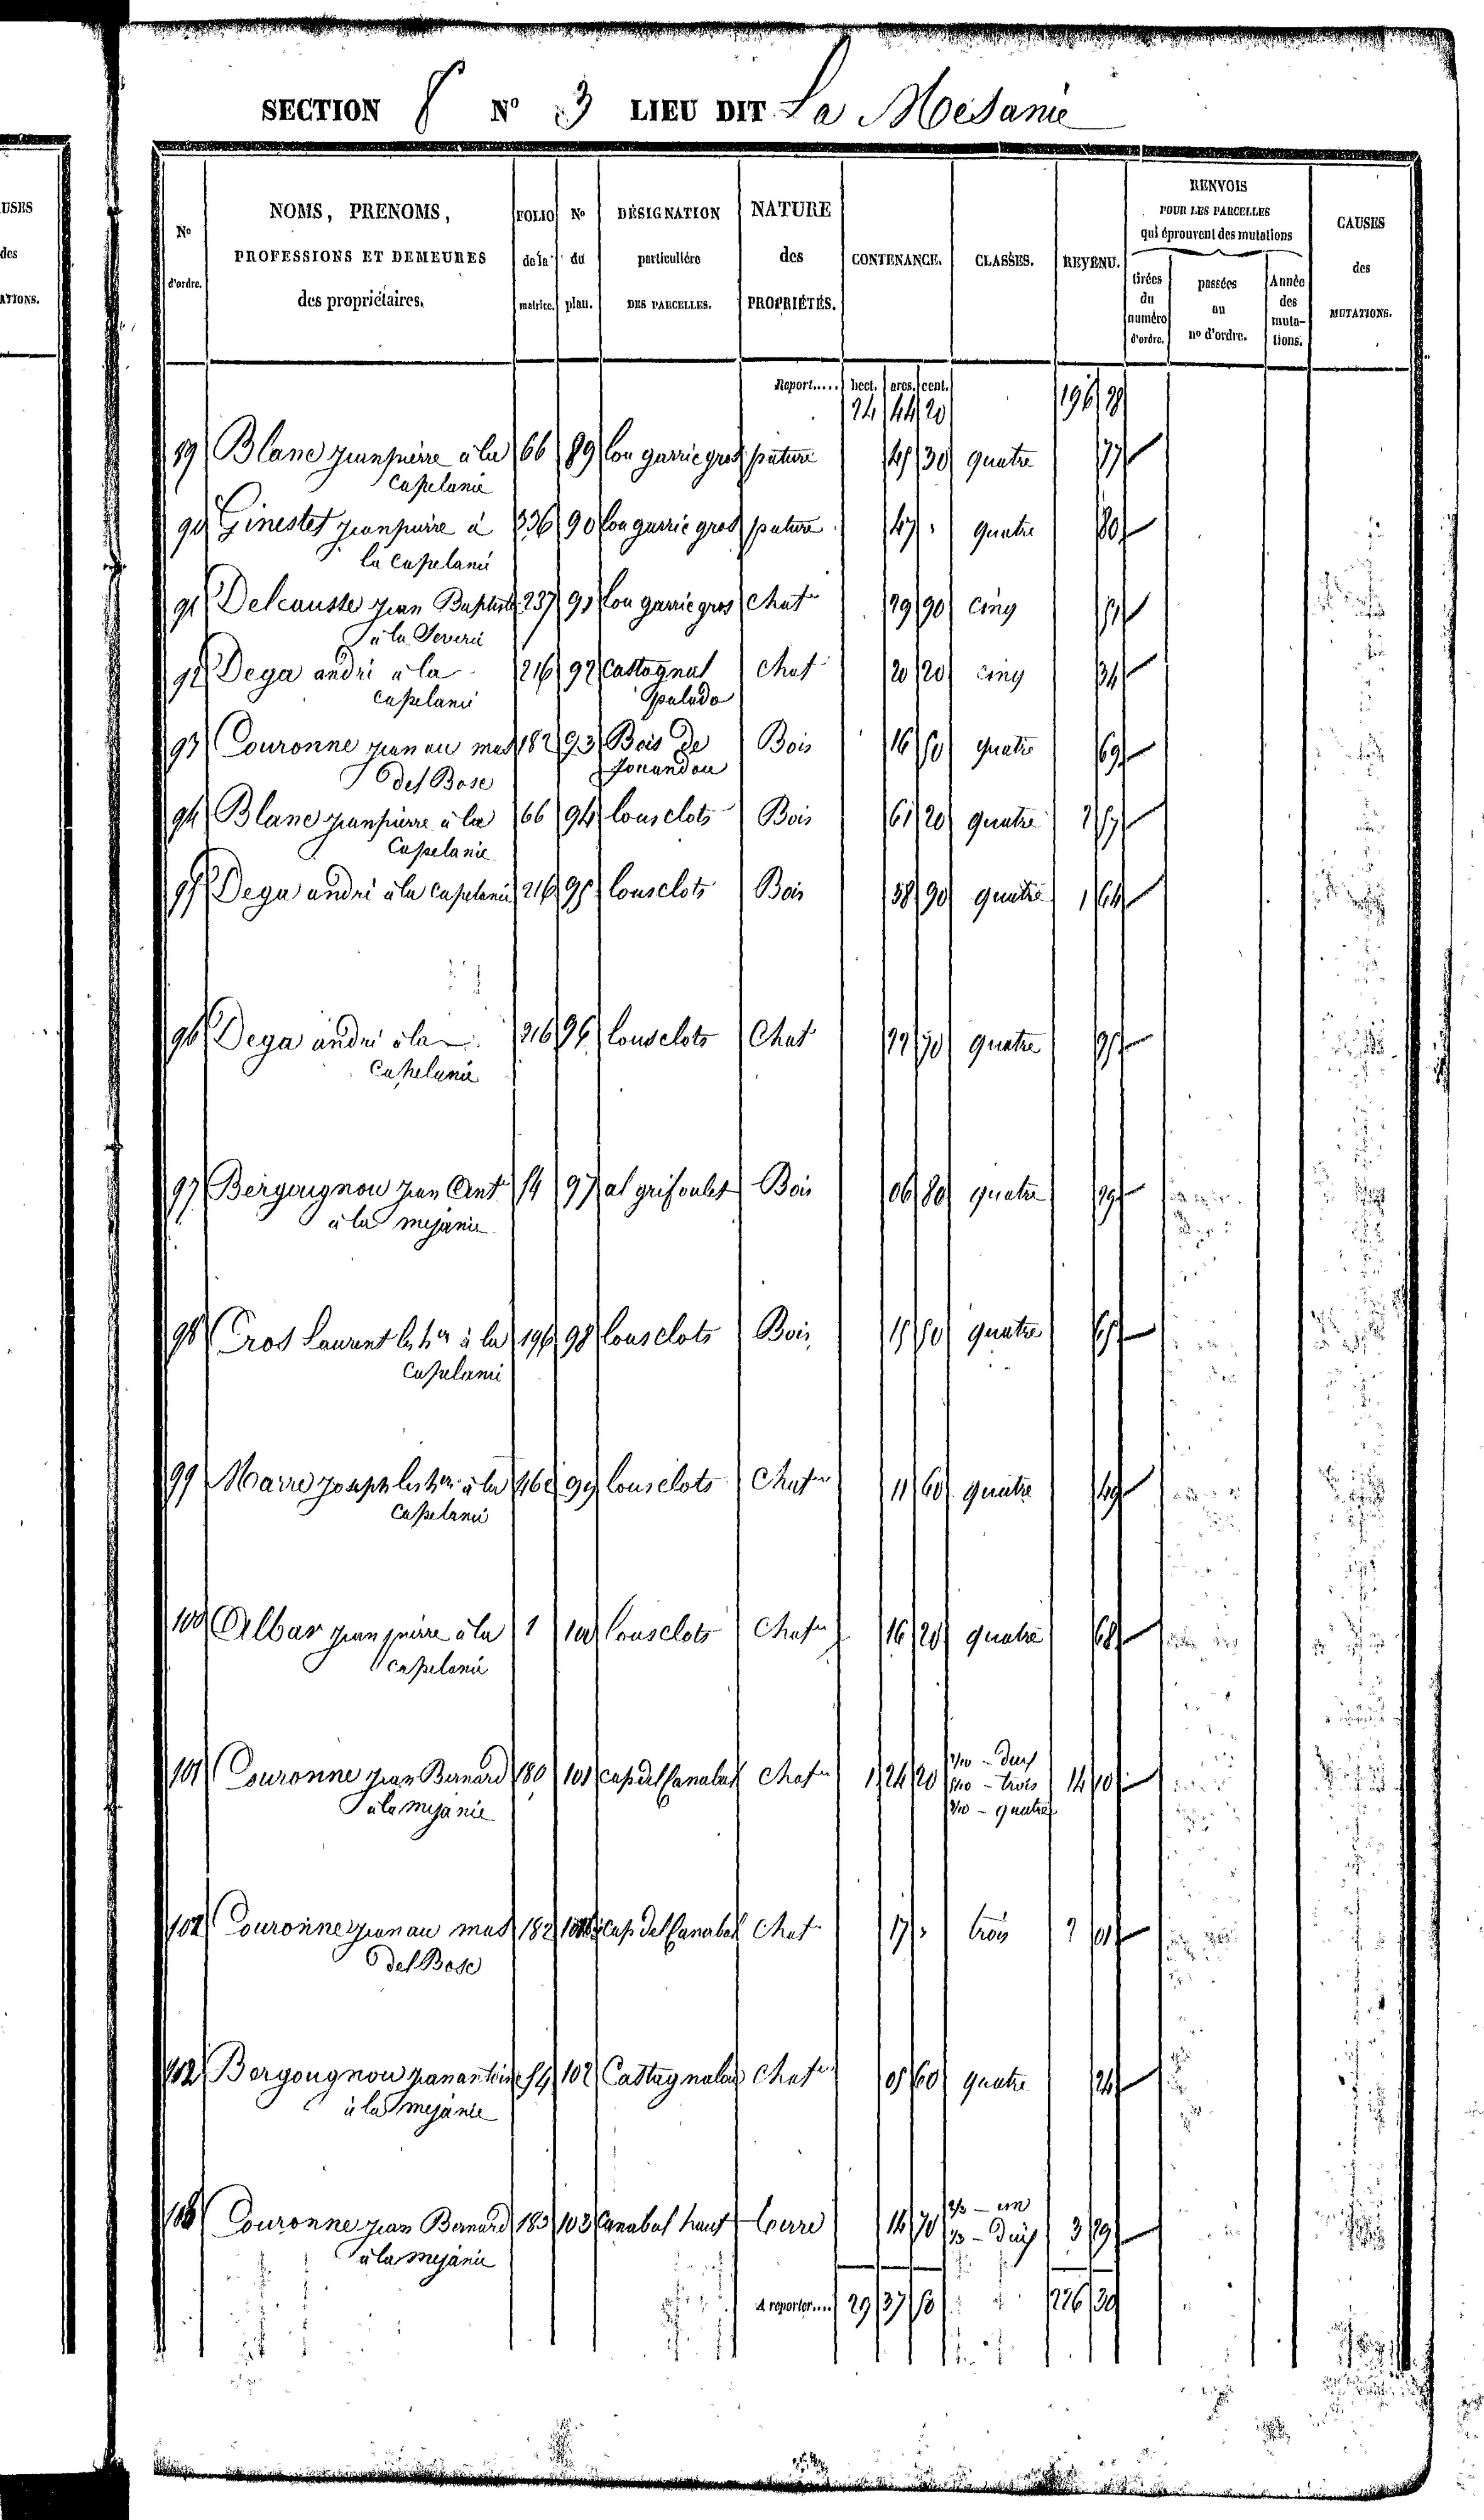 USES
des
ATIONS.
SECTION N° 3 LIEU DIT La Mesanie
N° d'ordre.
NOMS, PRENOMS, PROFESSIONS ET DEMEURES des propriétaires.
FOLIO de la matrice.
N° du plan.
DÉSIGNATION particulière DES PARCELLES.
NATURE des PROPRIÉTÉS.
CONTENANCE.
CLASSES.
REVENU.
RENVOIS POUR LES PARCELLES qui éprouvent des mutations
tirées du numéro d'ordre.
passées au n° d'ordre.
Année des mutations.
CAUSES des MUTATIONS.
Report..... hect. ares. cent.
24 44 20 196
89 Blanc jean pierre à la 66 89 lou garric gros pature 45 30 quatre 77
Capelanie
90 Ginestet jean pierre à 336 90 lou garric gros pature 47 " quatre 80
la Capelanie
91 Delcausse jean Baptiste 237 91 lou garric gros chat 29 90 cinq 51
à la Severie
92 Dega andré à la 216 92 Castagnal chat 20 20 cinq 34
Capelanie
93 Couronne jean au mas 182 93 Bois de Bois 16 50 quatre 69
del Bosc
94 Blanc jean pierre à la 66 94 lousclots Bois 61 20 quatre 2 57
Capelanie
95 Dega andré à la Capelanie 216 95 lousclots Bois 38 90 quatre 1 64
96 Dega andré à la 216 96 lousclots Chat 22 70 quatre 95
Capelanie
97 Bergougnou jean Ant 54 97 al grifoulet Bois 06 80 quatre 29
à la mejanie
98 Cros Laurent les hers à la 196 98 lousclots Bois 15 50 quatre 65
Capelanie
99 Marre joseph les hers à la 462 99 lousclots Chater 11 60 quatre 49
Capelanie
100 Albar jean pierre à la 1 100 lousclots Chater 16 20 quatre 68
Capelanie
101 Couronne jean Bernard 180 101 cap del Canabal chater 1 24 20 - deux
à la mejanie - trois 14 10
- quatre
Couronne jean au mas 182 cap del Canabal Chat 17 " trois 2 01
del Bosc
102 Bergougnou jean antoine 54 102 Castagnalou Chater 05 60 quatre 24
à la mejanie
103 Couronne jean Bernard 183 103 Canabal haut terre 14 70 2/3 - un
à la mejanie 1/3 - deux 3 79
A reporter.... 29 37 226 39